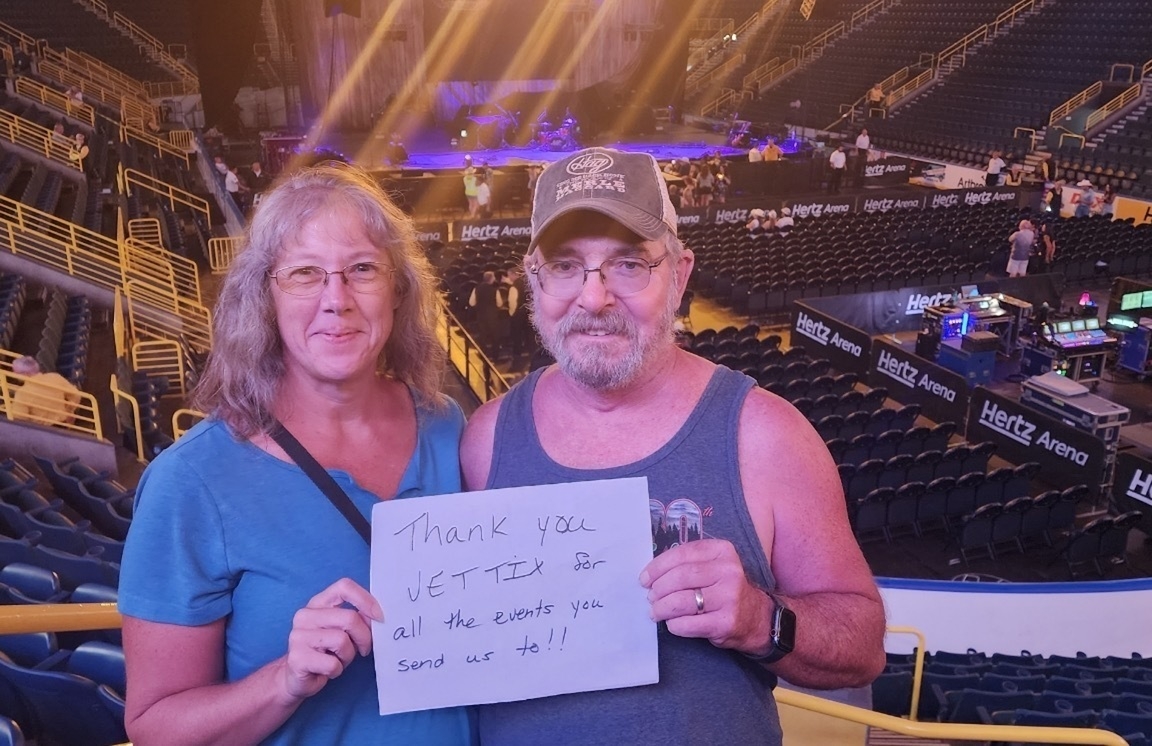 Hertz Arena
Hertz Arena
Hertz Arena
Hertz Arena
Hertz
Hertz
Hertz Arena
Hertz Arena
Hertz Arena
Hag
MERLE
HAGGARD
th
Thank you
VETTIX for
all the events you
send us to!!